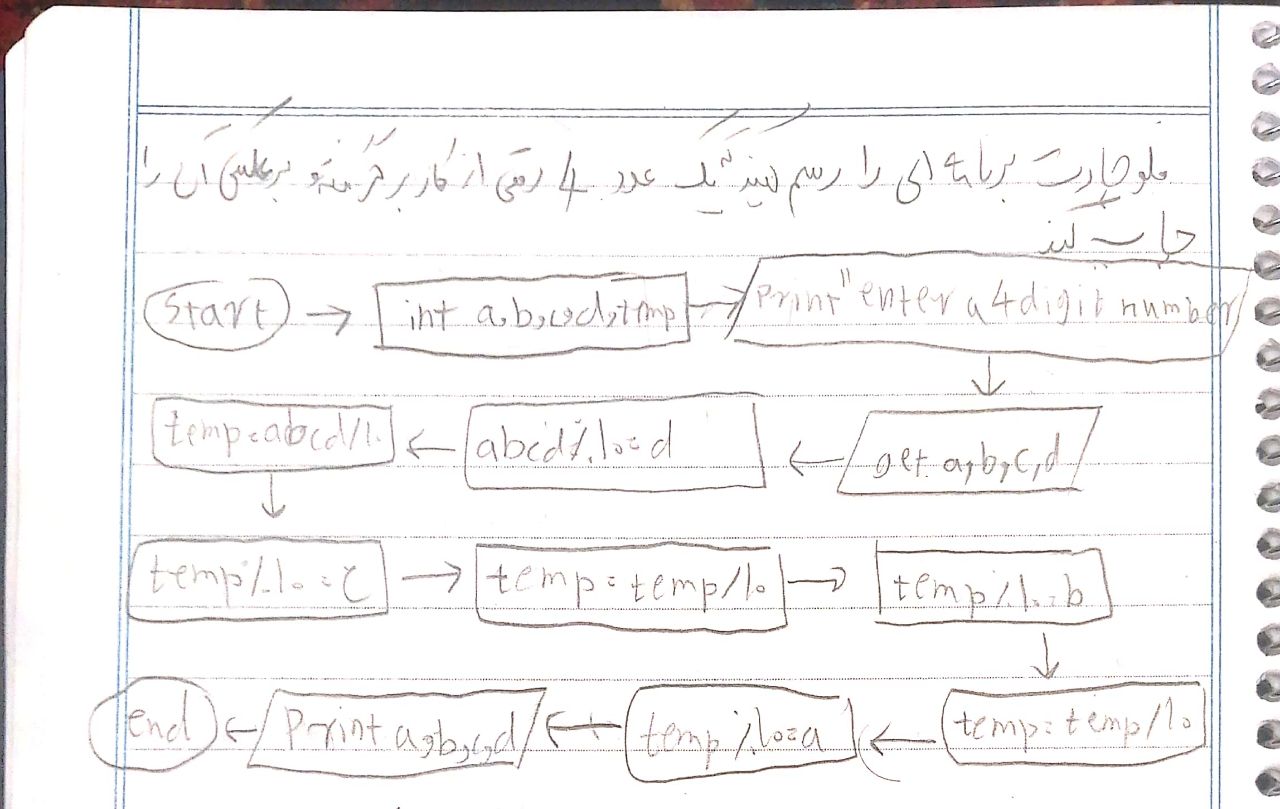 فلوچارت برنامه ای را رسم کنید یک عدد 4 رقمی از کاربر گرفته و برعکس آن را
چاپ کند
Start → int a,b,c,d,tmp → Print "enter a 4 digit number
get a,b,c,d
abcd٪۱۰=d
temp=abcd/۱۰
temp٪۱۰=c → temp=temp/۱۰ → temp٪۱۰=b
temp=temp/۱۰
temp٪۱۰=a
Print a,b,c,d
end